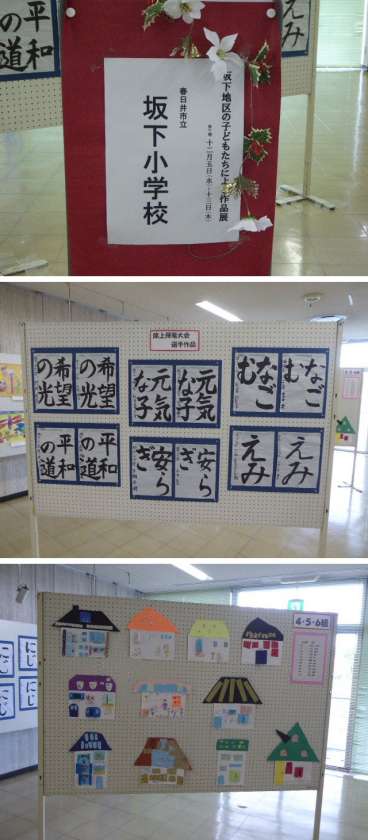 の道
平和
えみ
坂下地区の子どもたちによる作品展
十二月五日(水)~十三日(木)
春日井市立
坂下小学校
席上揮毫大会
選手作品
希望
の光
希望
の光
元気
な子
元気
な子
なご
む
なご
む
平和
の道
平和
の道
安ら
ぎ
安ら
ぎ
えみ
えみ
4・5・6組
にじ
にじ